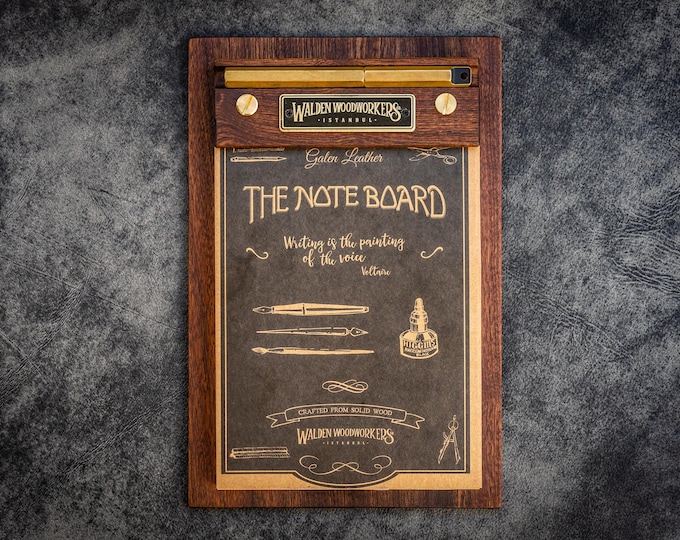 WALDEN WOODWORKERS
· ISTANBUL ·
Galen Leather
THE NOTE BOARD
Writing is the painting
of the voice
Voltaire
HIGGINS
CRAFTED FROM SOLID WOOD
WALDEN WOODWORKERS
· ISTANBUL ·